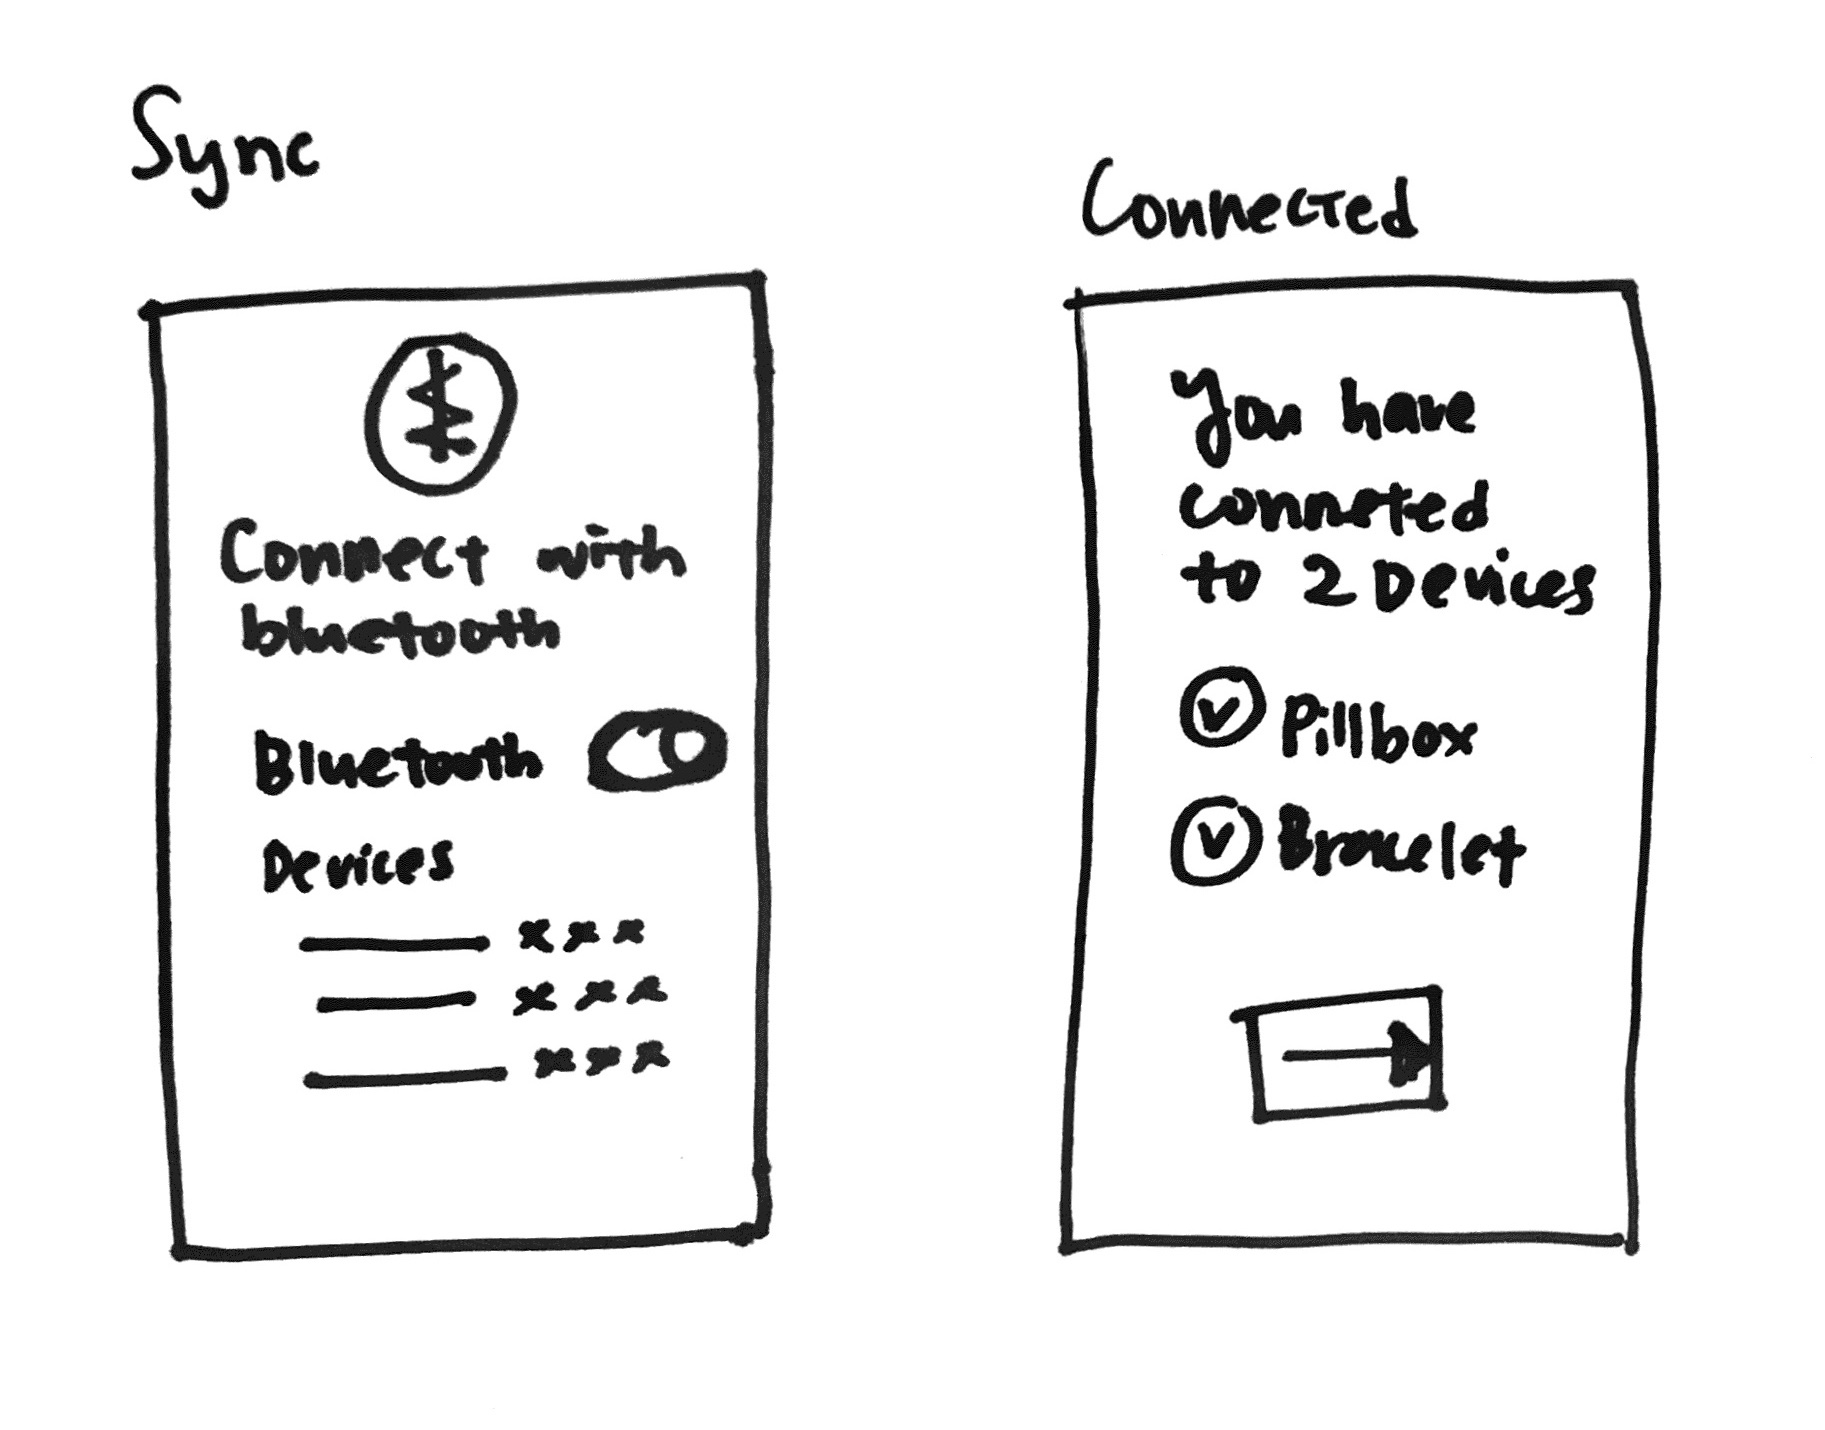 Sync
Connect with
bluetooth
Bluetooth
Devices
x x x
x x x
x x x
Connected
You have
conneted
to 2 Devices
Pillbox
Bracelet